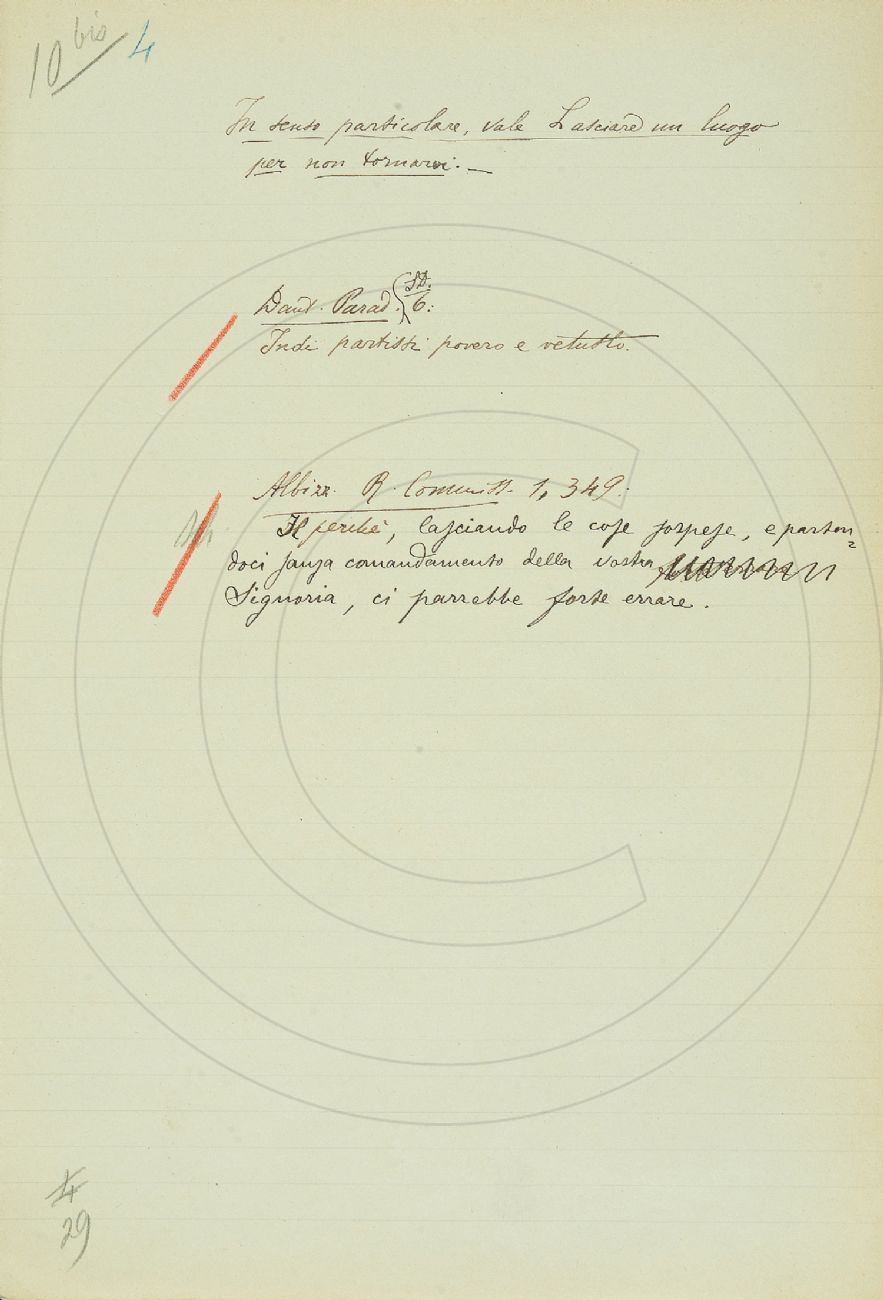 10 bis 4
In senso particolare, vale Lasciare un luogo
per non tornarvi. —
Dant. Parad. 6:
Indi partissi povero e vetusto.
Albizz. R. Commiss. 1, 349.:
Il perchè, lasciando le cose sospese, e parten=
doci sanza comandamento della vostra
Signoria, ci parrebbe forte errare.
4
29